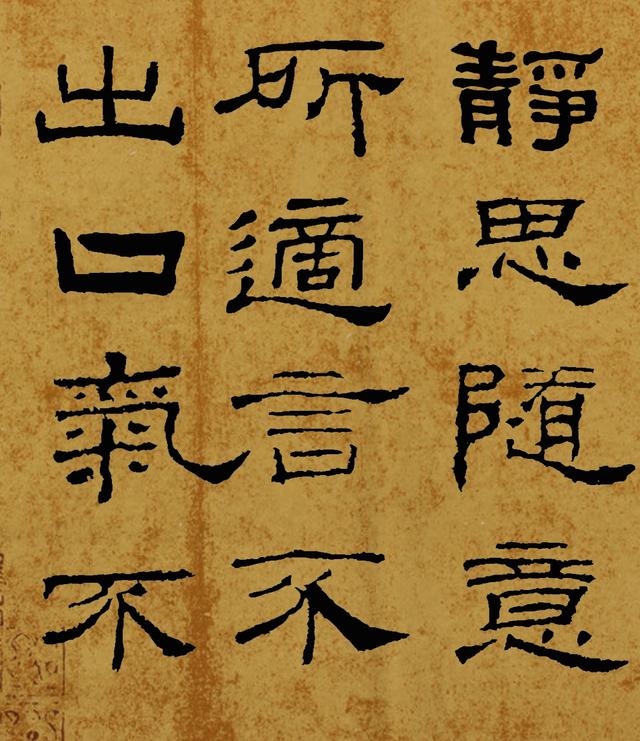 靜思隨意
所適言不
出口氣不